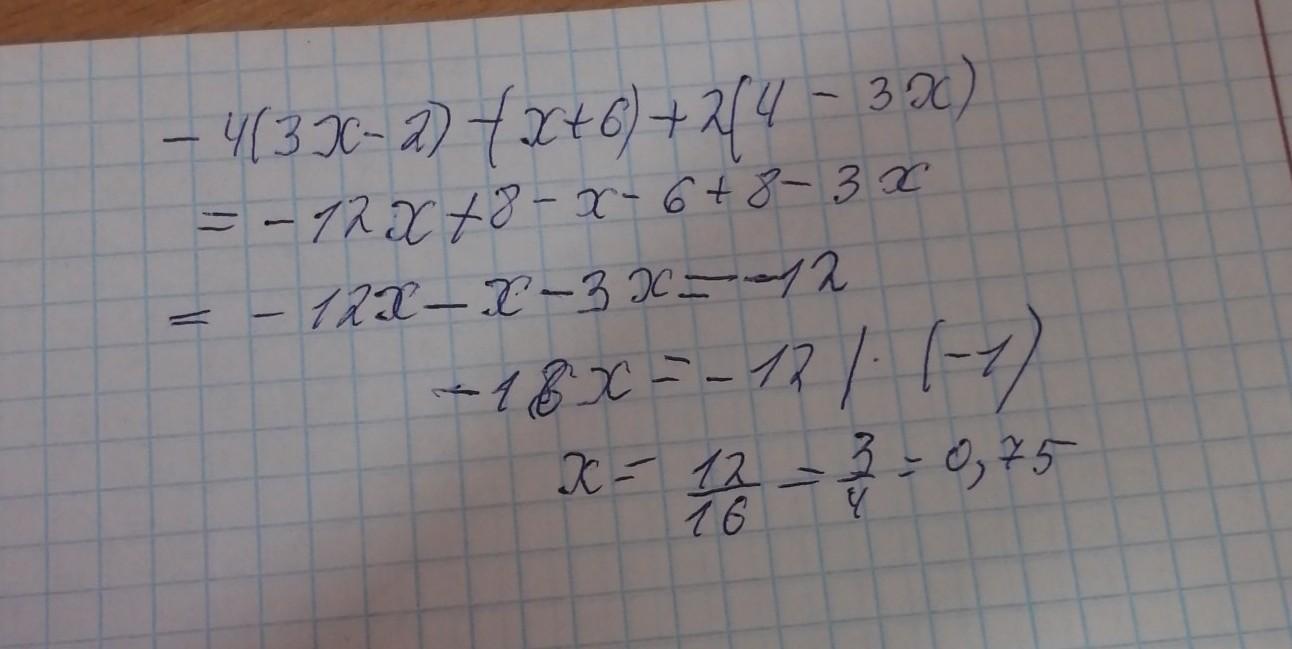 - 4(3x-2) -(x+6)+2(4 - 3x)
= -12x+8-x-6+8-3x
= -12x-x-3x=-12
-16x=-12 /·(-1)
x= 12/16 = 3/4 = 0,75